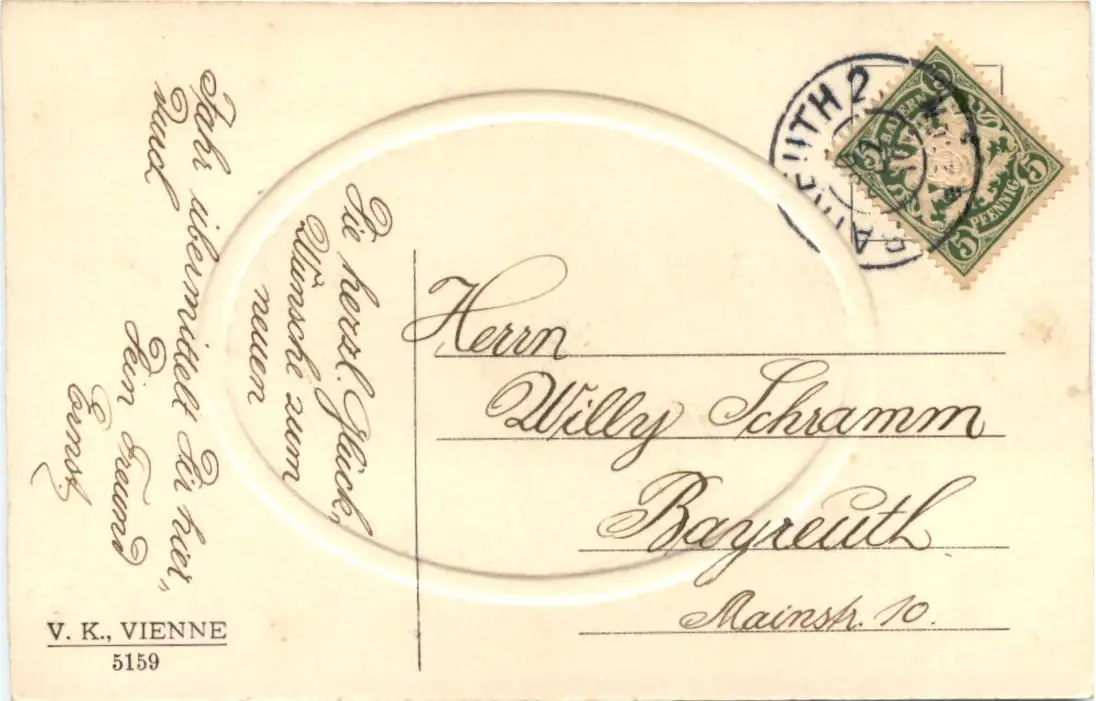 Die herzl. Glück-
Wünsche zum
neuen
Jahr übermittelt Dir hier-
durch
Dein Freund
Ernst.
Herrn
Willy Schramm
Bayreuth
Mainstr. 10.
V. K., VIENNE
5159
BAYREUTH 2
BAYERN
5
5
5
PFENNIG